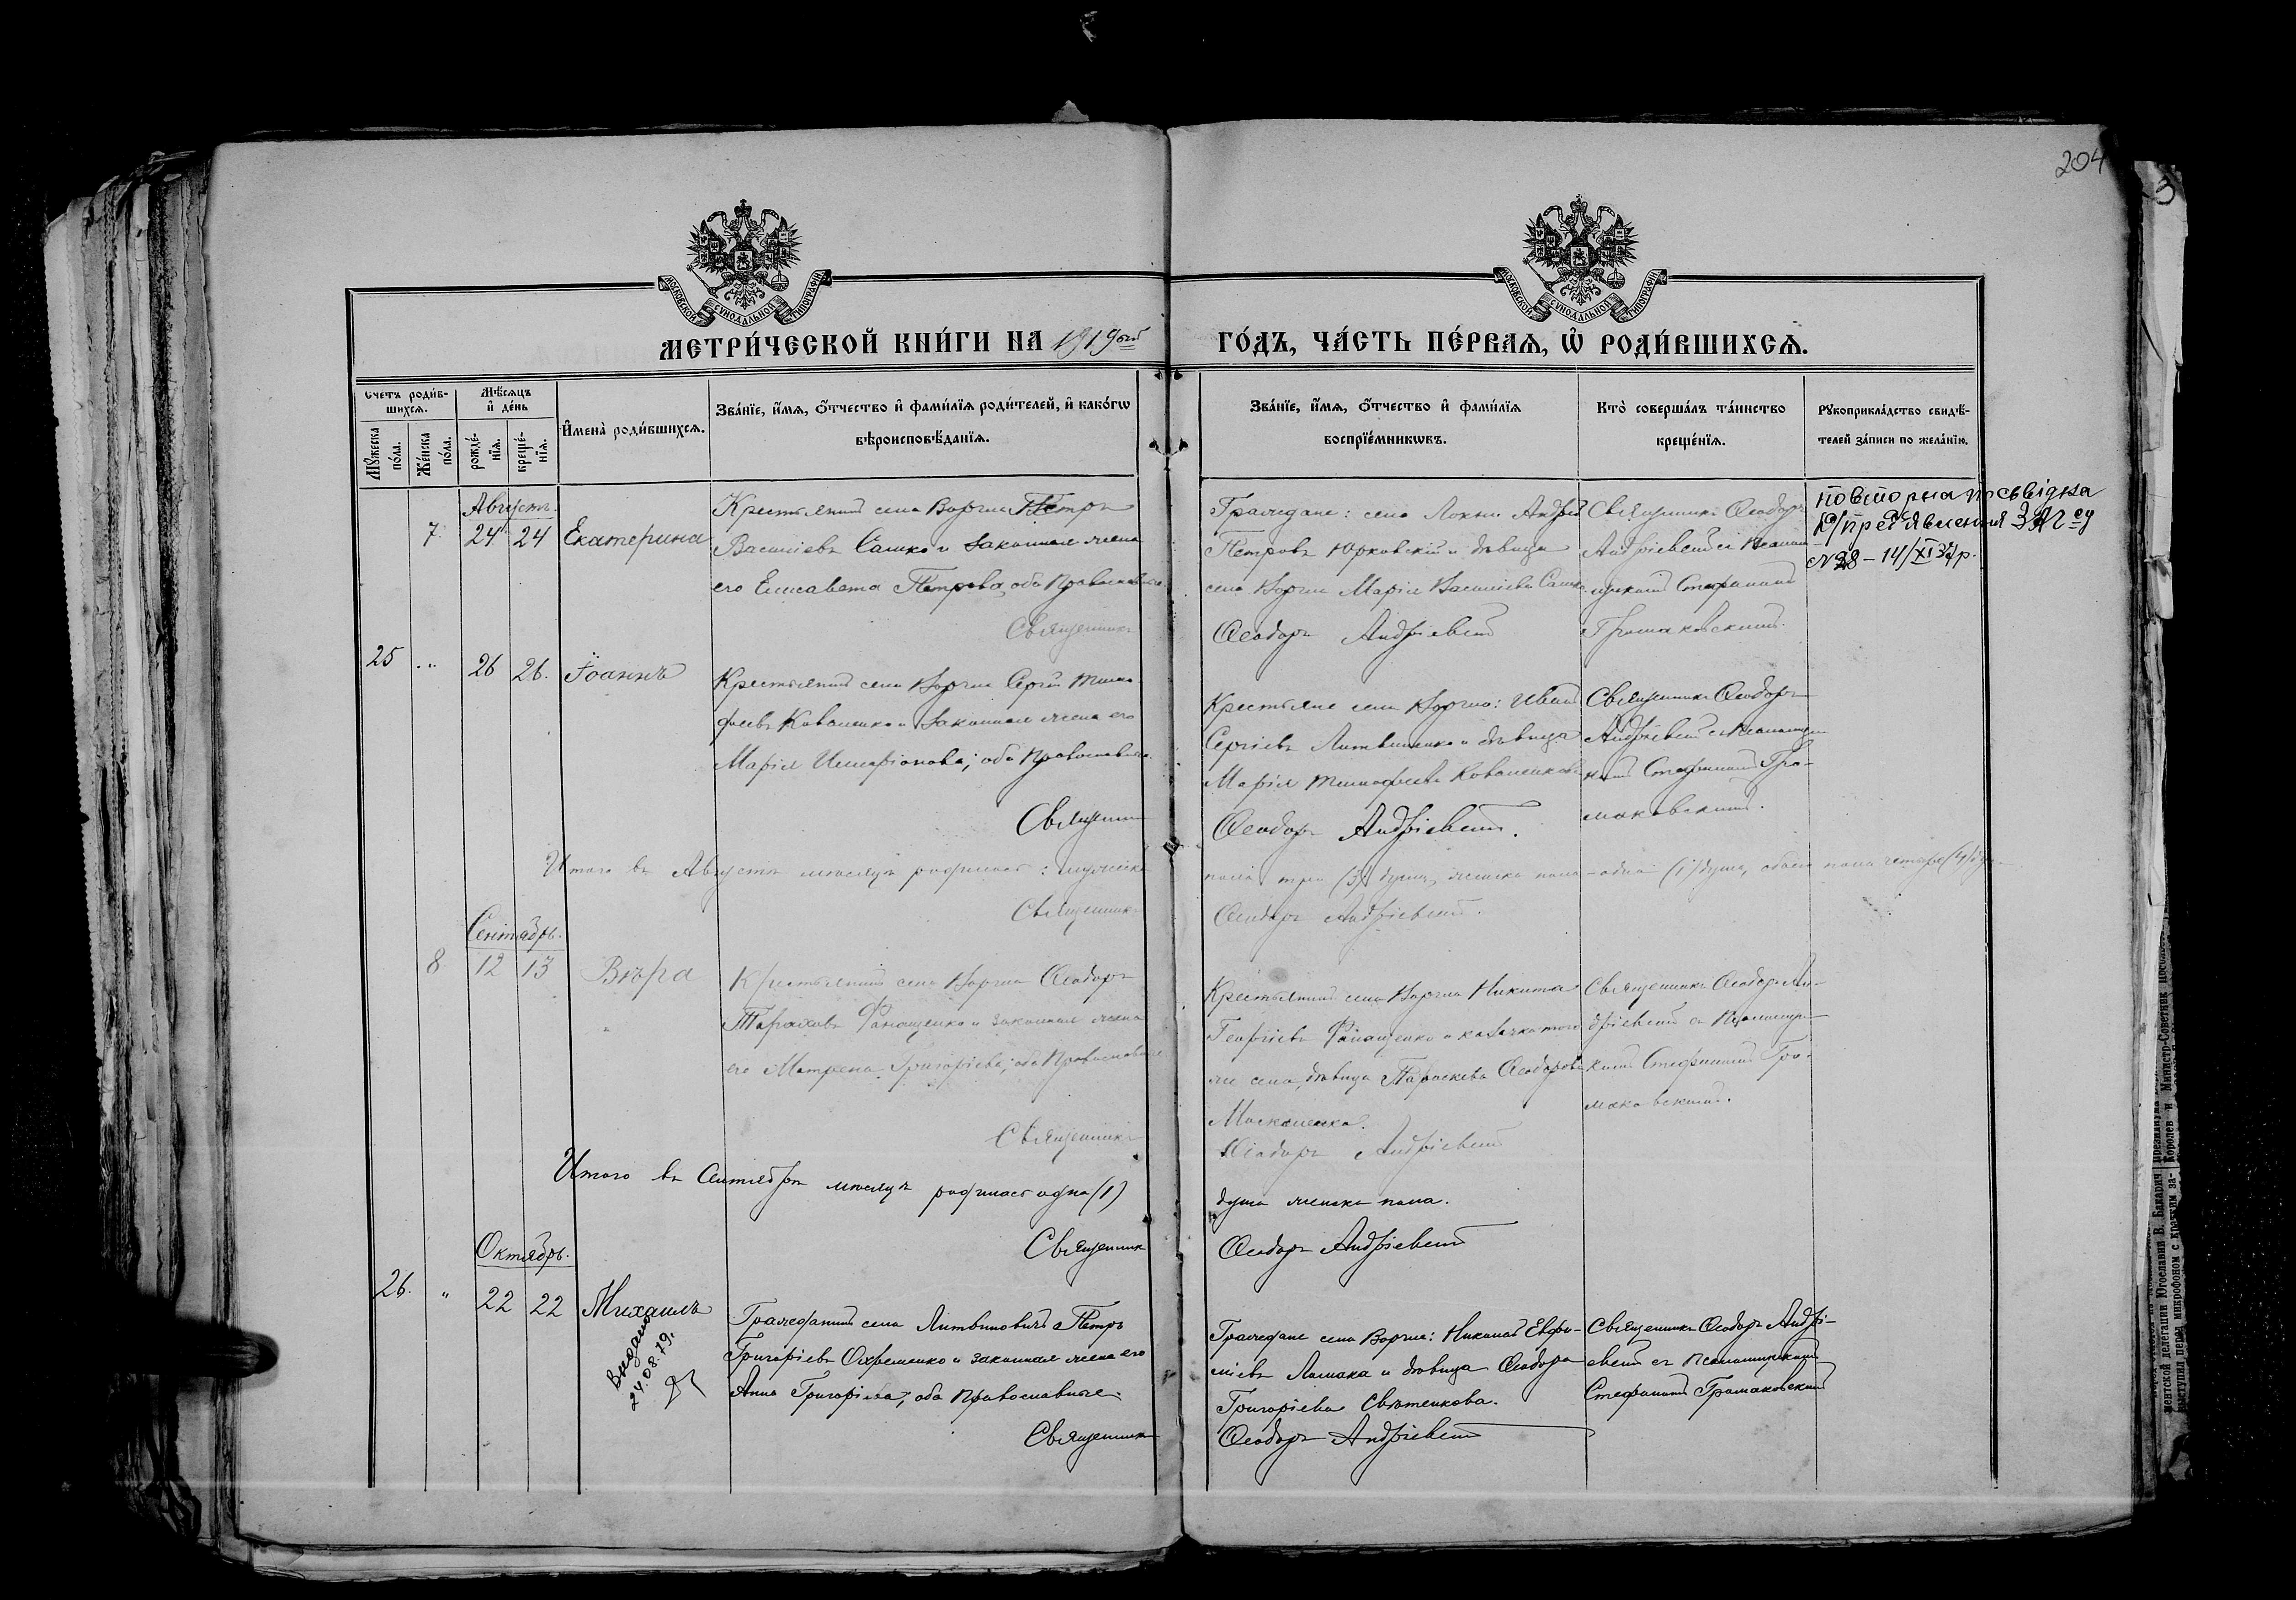 204
МОСКОВСКОЙ СУНОДАЛЬНОЙ ТИПОГРАФІИ
МОСКОВСКОЙ СУНОДАЛЬНОЙ ТИПОГРАФІИ
МЕТРИ́ЧЕСКОЙ КНИ́ГИ НА 1919ый ГО́ДЪ, ЧА́СТЬ ПЕ́РВАѦ, Ѡ҆ РОДИ́ВШИХСѦ.
Счетъ роди́вшихсѧ.
Мꙋ́жеска по́ла.
Же́нска по́ла.
Мѣ́сѧцъ и҆ де́нь
рожде́нїѧ.
креще́нїѧ.
И҆мена̀ роди́вшихсѧ.
Зва́нїе, и҆́мѧ, ѻ҆́тчество и҆ фами́лїѧ роди́телей, и҆ како́гѡ
вѣроисповѣ́данїѧ.
Зва́нїе, и҆́мѧ, ѻ҆́тчество и҆ фами́лїѧ
воспрїе́мникѡвъ.
Кто̀ соверша́лъ та́инство
креще́нїѧ.
Рꙋкоприкла́дство свидѣ́-
телей за́писи по жела́нїю.
Августъ.
7. 24 24 Екатерина
Крестьянинъ села Воргла Петръ
Василіевъ Сашко и законная жена
его Елисавета Петрова, оба Православные
Священникъ
Граждане: села Локни Андрей
Петровъ Юрковскій и дѣвица
села Воргла Марія Василіева Сашко.
Ѳеодоръ Андріевскій
Священникъ Ѳеодоръ
Андріевскій съ псалом-
щикомъ Стефаномъ
Громаковскимъ.
повторна посвідка
№28 – 14/XI 37р.
25 " 26 26. Іоаннъ
Крестьянинъ села Воргла Сергій Тимо-
феевъ Коваленко и законная жена его
Марія Иларіонова; оба Православные.
Священникъ
Крестьяне села Воргла: Иванъ
Сергіевъ Литвиненко и дѣвица
Марія Тимофеева Коваленкова
Ѳеодоръ Андріевскій.
Священникъ Ѳеодоръ
Андріевскій съ псаломщи-
комъ Стефаномъ Гро-
маковскимъ.
Итого въ Августѣ мѣсяцѣ родилось: мужеска
пола три (3) души, женска пола – одна (1) душа, обоего пола четыре (4) души
Священникъ
Ѳеодоръ Андріевскій.
Сентябрь.
8 12 13 Вѣра
Крестьянинъ села Воргла Ѳеодоръ
Тарасовъ Фанащенко и законная жена
его Матрена Григоріева; оба Православные
Священникъ
Крестьянинъ села Воргла Никита
Георгіевъ Фанащенко и казачка того
же села, дѣвица Параскева Ѳеодорова
Москаленко.
Ѳеодоръ Андріевскій
Священникъ Ѳеодоръ Ан-
дріевскій съ псаломщи-
комъ Стефаномъ Гро-
маковскимъ.
Итого въ Сентябрѣ мѣсяцѣ родилась одна (1)
душа женска пола.
Священникъ
Ѳеодоръ Андріевскій
Октябрь.
26. " 22 22 Михаилъ
Выдано
24.08.79.
Гражданинъ села Литвиновичъ Петръ
Григоріевъ Охременко и законная жена его
Анна Григоріева; оба Православные.
Священникъ
Граждане села Воргла: Николай Евфи-
міевъ Ломака и дѣвица Ѳеодора
Григоріева Святенкова.
Ѳеодоръ Андріевскій
Священникъ Ѳеодоръ Андрі-
евскій съ псаломщикомъ
Стефаномъ Громаковскимъ